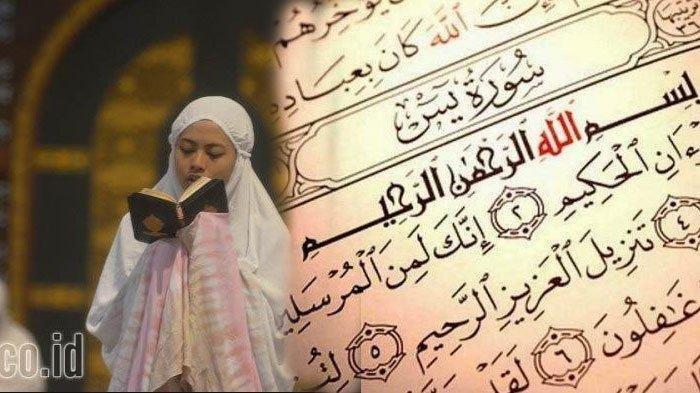 يُؤَخِّرُهُمْ
إِنَّ ٱللَّهَ كَانَ بِعِبَادِهِ
سُورَةُ يسٓ
بِسْمِ ٱللَّهِ ٱلرَّحْمَٰنِ ٱلرَّحِيمِ
ءَانِ ٱلْحَكِيمِ ٢ إِنَّكَ لَمِنَ ٱلْمُرْسَلِين
٤ تَنزِيلَ ٱلْعَزِيزِ ٱلرَّحِيمِ ٥ لِتُ
غَٰفِلُونَ ٦ لَقَدْ
co.id